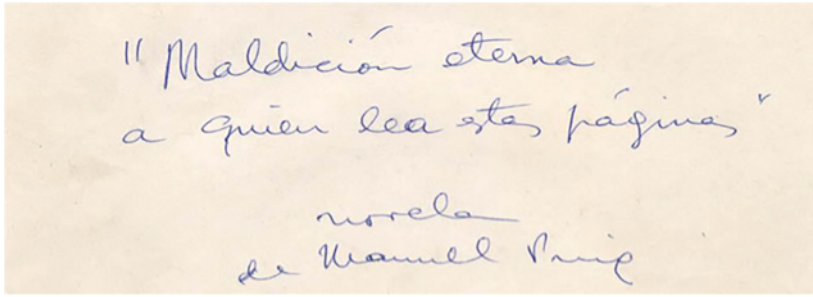 "Maldición eterna
a quien lea estas páginas"
novela
de Manuel Puig